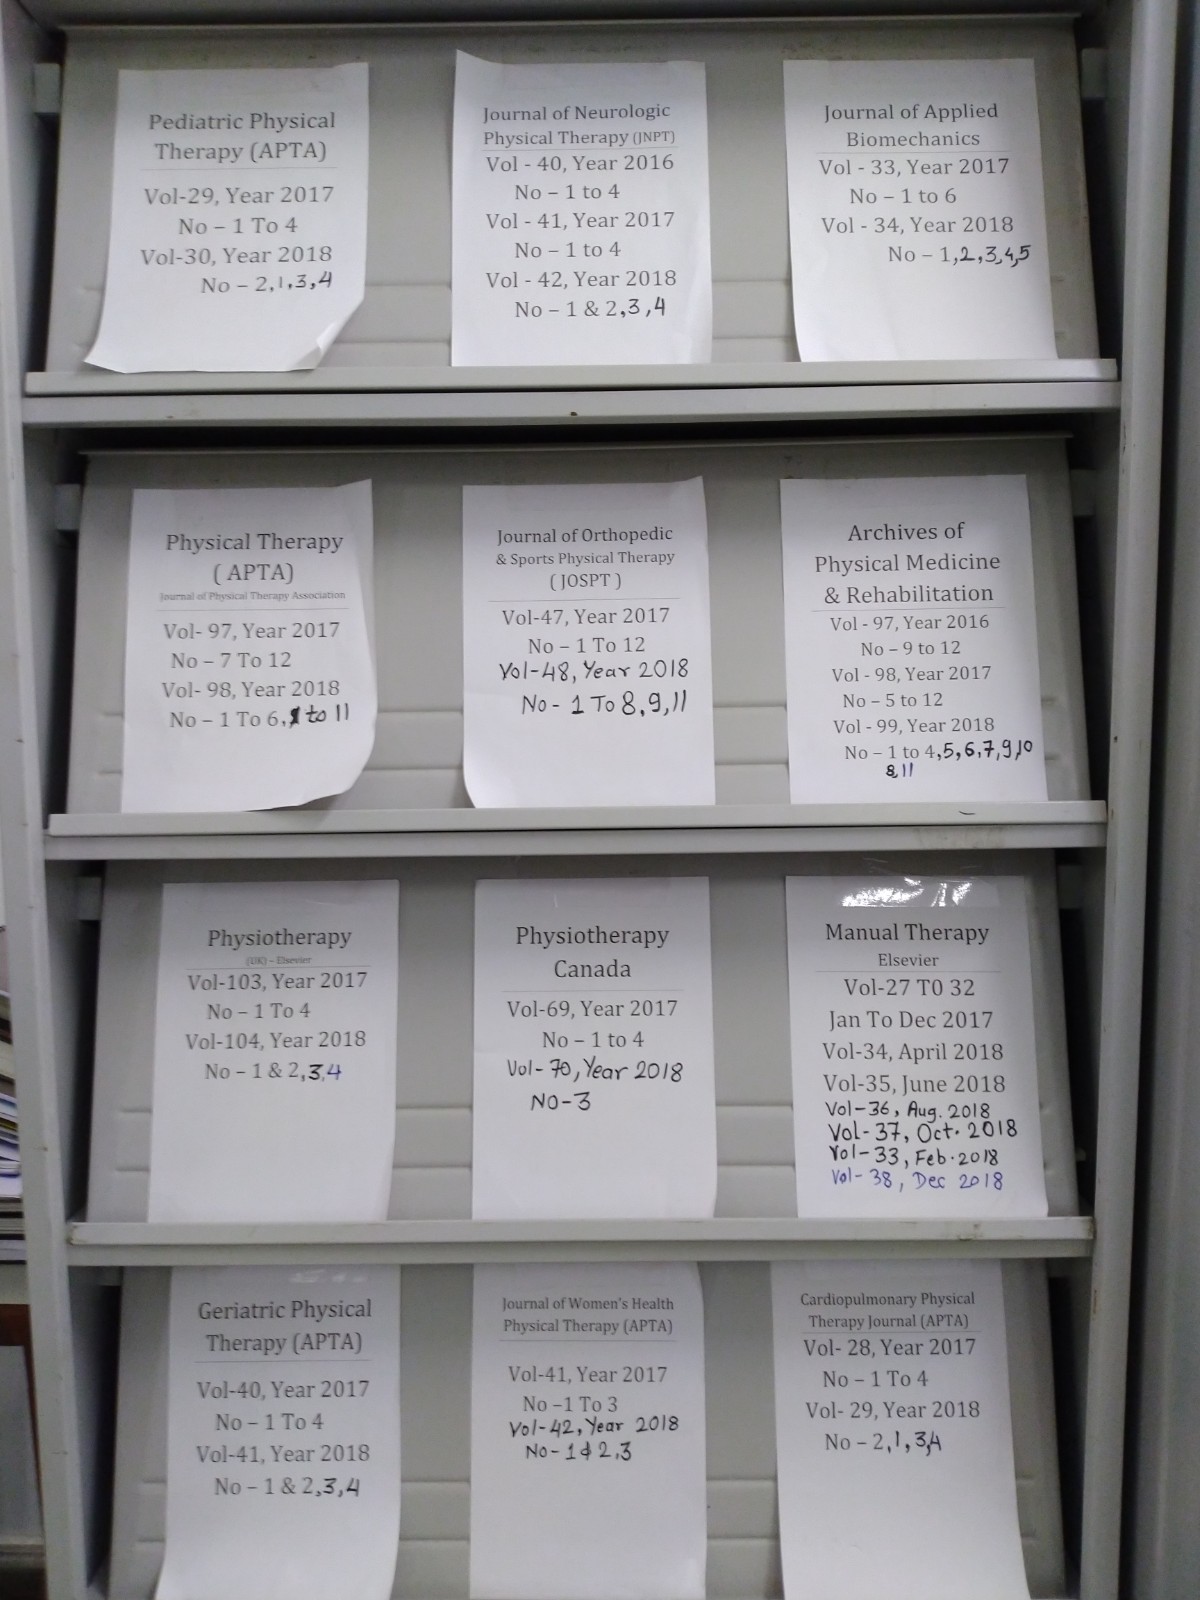 Pediatric Physical
Therapy (APTA)
Vol-29, Year 2017
No – 1 To 4
Vol-30, Year 2018
No – 2,1,3,4
Journal of Neurologic
Physical Therapy (JNPT)
Vol - 40, Year 2016
No – 1 to 4
Vol - 41, Year 2017
No – 1 to 4
Vol - 42, Year 2018
No – 1 & 2,3,4
Journal of Applied
Biomechanics
Vol - 33, Year 2017
No – 1 to 6
Vol - 34, Year 2018
No – 1,2,3,4,5
Physical Therapy
( APTA)
Journal of Physical Therapy Association
Vol- 97, Year 2017
No – 7 To 12
Vol- 98, Year 2018
No – 1 To 6, to 11
Journal of Orthopedic
& Sports Physical Therapy
( JOSPT )
Vol-47, Year 2017
No – 1 To 12
Vol-48, Year 2018
No - 1 To 8,9,11
Archives of
Physical Medicine
& Rehabilitation
Vol - 97, Year 2016
No – 9 to 12
Vol - 98, Year 2017
No – 5 to 12
Vol - 99, Year 2018
No – 1 to 4,5,6,7,9,10
8,11
Physiotherapy
(UK) – Elsevier
Vol-103, Year 2017
No – 1 To 4
Vol-104, Year 2018
No – 1 & 2,3,4
Physiotherapy
Canada
Vol-69, Year 2017
No – 1 to 4
Vol-70, Year 2018
NO-3
Manual Therapy
Elsevier
Vol-27 T0 32
Jan To Dec 2017
Vol-34, April 2018
Vol-35, June 2018
Vol-36, Aug. 2018
Vol-37, Oct. 2018
Vol-33, Feb.2018
Vol-38, Dec 2018
Geriatric Physical
Therapy (APTA)
Vol-40, Year 2017
No – 1 To 4
Vol-41, Year 2018
No – 1 & 2,3,4
Journal of Women's Health
Physical Therapy (APTA)
Vol-41, Year 2017
No –1 To 3
Vol-42, Year 2018
No-1 & 2,3
Cardiopulmonary Physical
Therapy Journal (APTA)
Vol- 28, Year 2017
No – 1 To 4
Vol- 29, Year 2018
No – 2,1,3,4